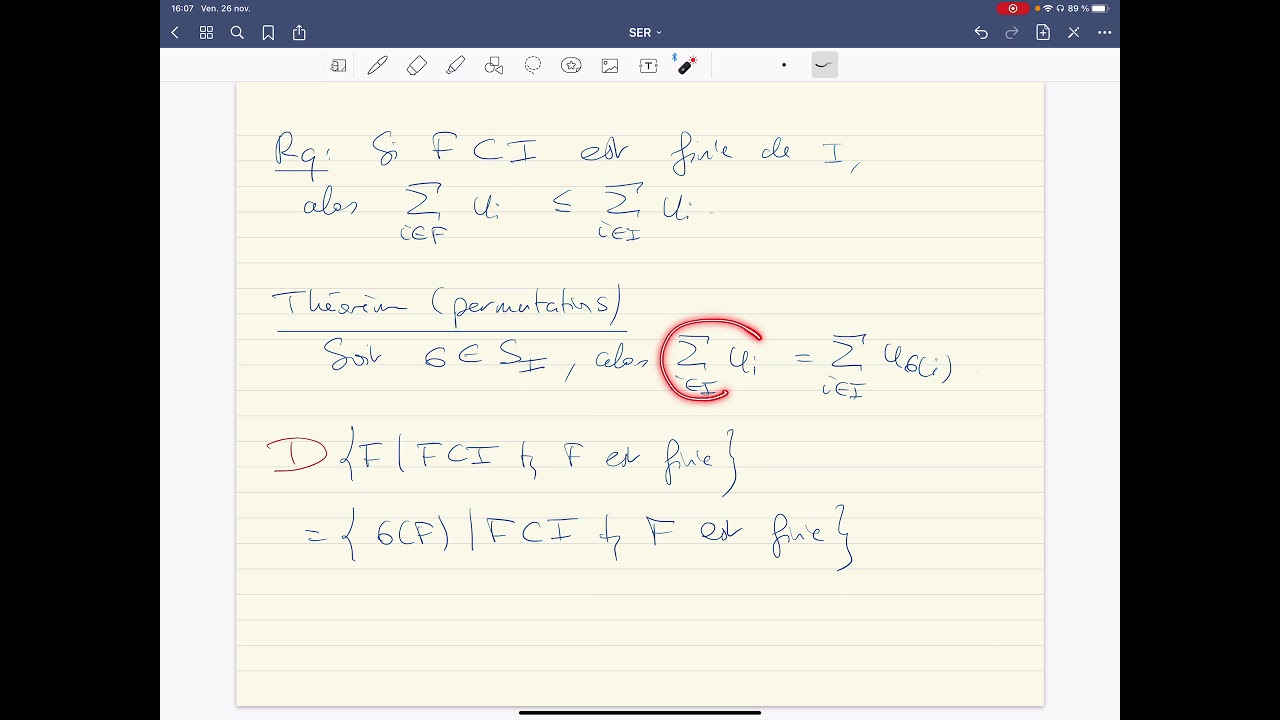 16:07 Ven. 26 nov.
89 %
SER
Rq: Si F ⊂ I est finie de I,
alors ∑_{i∈F} u_i ≤ ∑_{i∈I} u_i.
Théorème (permutations)
Soit σ ∈ S_I, alors ∑_{i∈I} u_i = ∑_{i∈I} u_{σ(i)}
D {F | F ⊂ I et F est finie}
= {σ(F) | F ⊂ I et F est finie}